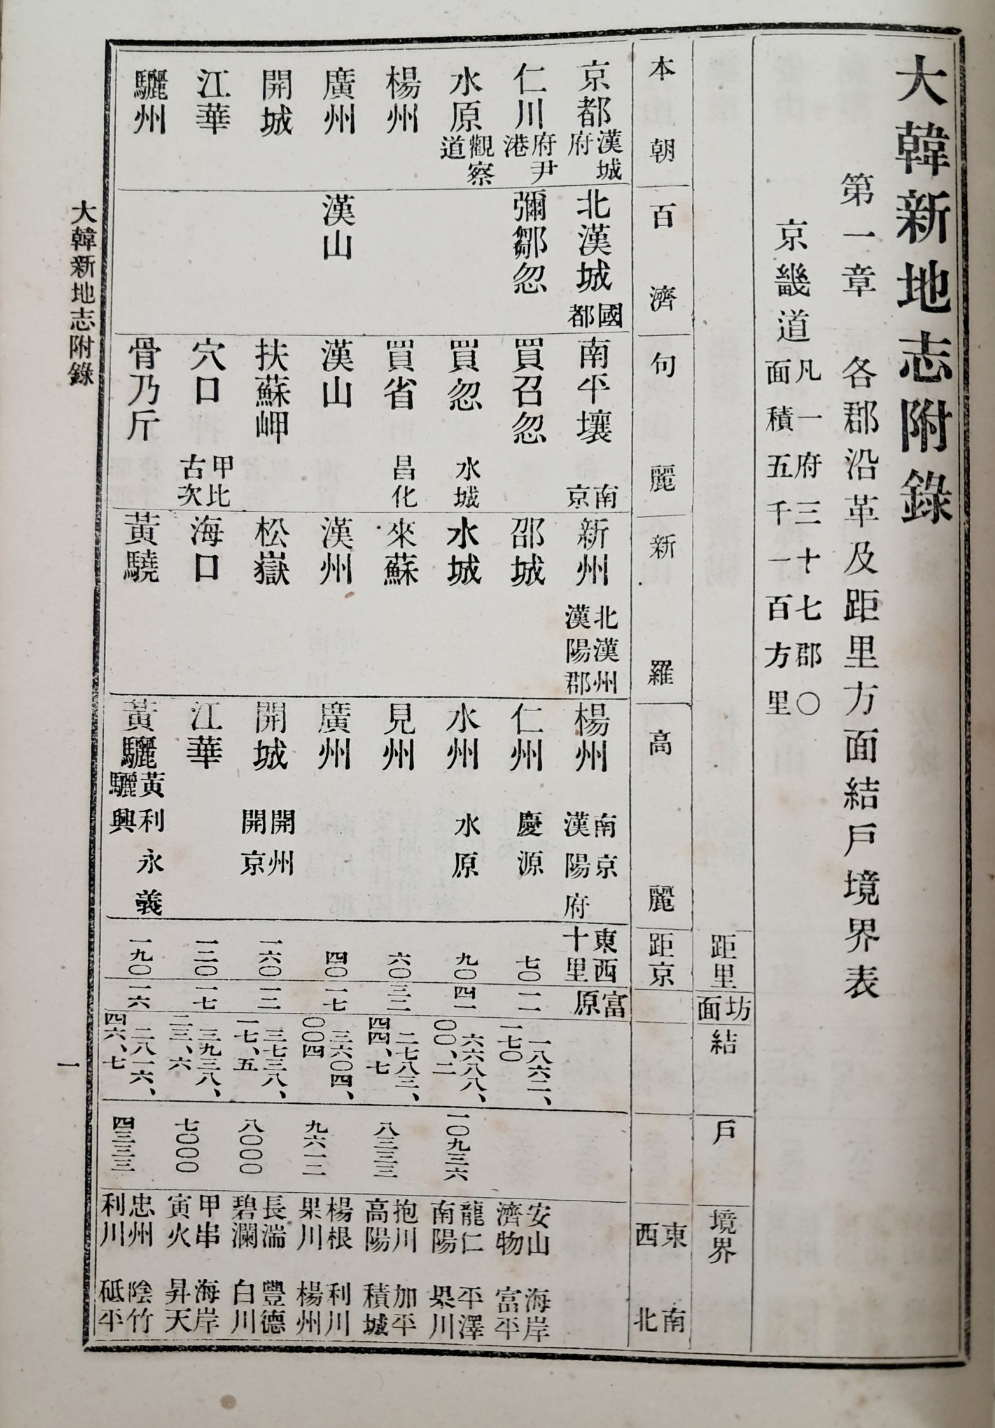 大韓新地志附錄
第一章 各郡沿革及距里方面結戶境界表
京畿道 凡一府三十七郡〇
面積五千一百方里
距里 坊面 結 戶 境界
本朝 百濟 句麗 新羅 高麗 距京 東西 南北
京都 漢城府 北漢城 國都 南平壤 南京 新州 北漢州漢陽郡 楊州 南京漢陽府 東西十里 富原
仁川 府尹港 彌鄒忽 買召忽 邵城 仁州 慶源 七〇 一一 一八六二、一七〇 安山濟物 海岸富平
水原 觀察道 買忽 水城 水城 水州 水原 九〇 四一 六六八八、〇〇、二 一〇九三六 龍仁南陽 平澤果川
楊州 買省 昌化 來蘇 見州 六〇 三二 二七八三、四四、七 八三三三 抱川高陽 加平積城
廣州 漢山 漢山 漢州 廣州 四〇 一七 三六〇四、〇〇四 九六一二 楊根果川 利川楊州
開城 扶蘇岬 松嶽 開城 開州開京 一六〇 一二 三七三八、一七、五 八〇〇〇 長湍碧瀾 豐德白川
江華 穴口 甲比古次 海口 江華 一二〇 一七 三九三八、二三、六 七〇〇〇 甲串寅火 海岸昇天
驪州 骨乃斤 黃驍 黃驪 黃利永義驪興 一九〇 一六 二八一六、四六、七 四三三三 忠州利川 陰竹砥平
大韓新地志附錄
一